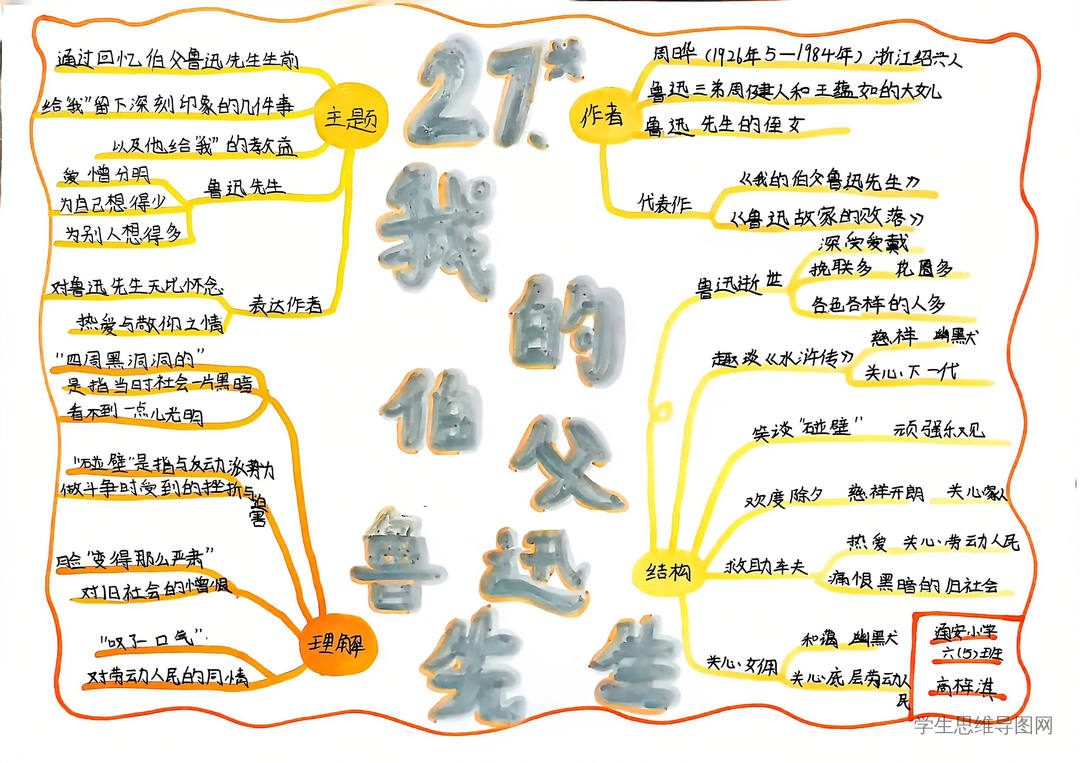 27.*
我
的
伯
父
鲁
迅
先
生
主题
通过回忆伯父鲁迅先生生前
给"我"留下深刻印象的几件事
以及他给"我"的教益
鲁迅先生
爱憎分明
为自己想得少
为别人想得多
表达作者
对鲁迅先生无比怀念
热爱与敬仰之情
作者
周晔（1926年5—1984年）浙江绍兴人
鲁迅三弟周健人和王蕴如的大女儿
鲁迅先生的侄女
代表作
《我的伯父鲁迅先生》
《鲁迅故家的败落》
理解
"四周黑洞洞的"
是指当时社会一片黑暗
看不到一点儿光明
"碰壁"是指与反动派势力
做斗争时受到的挫折与迫害
脸"变得那么严肃"
对旧社会的憎恨
"叹了一口气"
对劳动人民的同情
结构
鲁迅逝世
深受爱戴
挽联多 花圈多
各色各样的人多
趣谈《水浒传》
慈祥 幽默
关心下一代
笑谈"碰壁" 顽强乐观
欢度除夕 慈祥开朗 关心家人
救助车夫
热爱 关心劳动人民
痛恨黑暗的旧社会
关心女佣
和蔼 幽默
关心底层劳动人民
通安小学
六（5）班
高梓淇
学生思维导图网